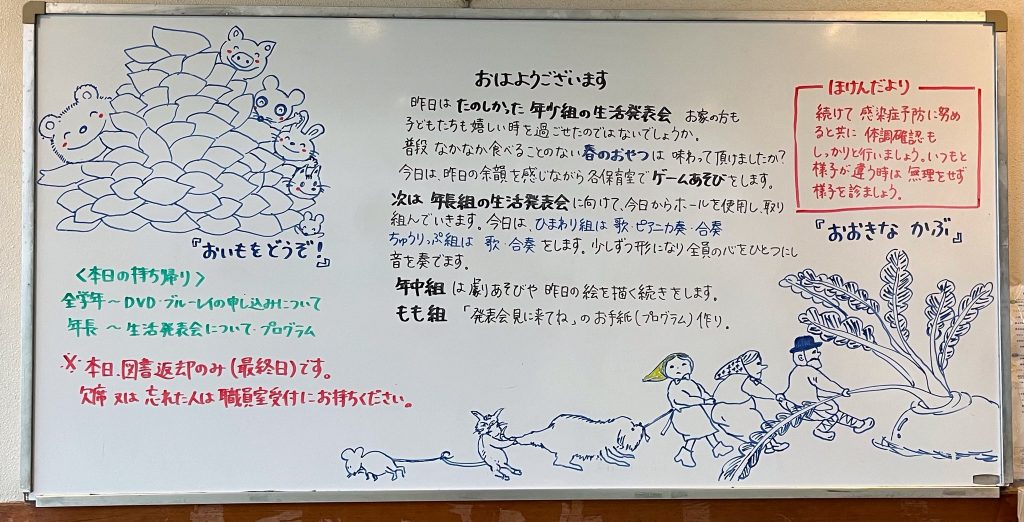 おはようございます
昨日は たのしかった 年少組の生活発表会 お家の方も
子どもたちも嬉しい時を過ごせたのではないでしょうか。
普段 なかなか食べることのない 春のおやつは 味わって頂けましたか？
今日は、昨日の余韻を感じながら各保育室でゲームあそびをします。
次は 年長組の生活発表会に向けて、今日からホールを使用し、取り
組んでいきます。今日は、ひまわり組は 歌・ピアニカ奏・合奏
ちゅうりっぷ組は 歌・合奏をします。少しずつ形になり全員の心をひとつにし
音を奏でます。
年中組 は劇あそびや 昨日の絵を描く続きをします。
もも組 「発表会見に来てね」のお手紙(プログラム)作り．
ほけんだより
続けて 感染症予防に努め
ると共に 体調確認も
しっかりと行いましょう。いつもと
様子が違う時は 無理をせず
様子を診ましょう。
『おおきな かぶ』
『おいもをどうぞ！』
＜本日の持ち帰り＞
全学年～DVD・ブルーレイの申し込みについて
年長 ～生活発表会について・プログラム
※本日、図書返却のみ(最終日)です。
欠席 又は 忘れた人は 職員室受付にお持ちください。